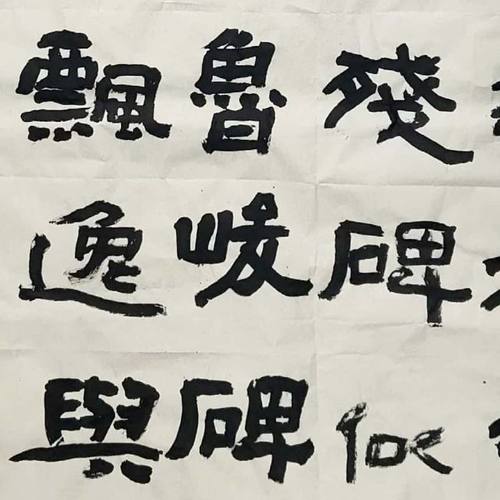 殘碑似
魯峻碑
飄逸與